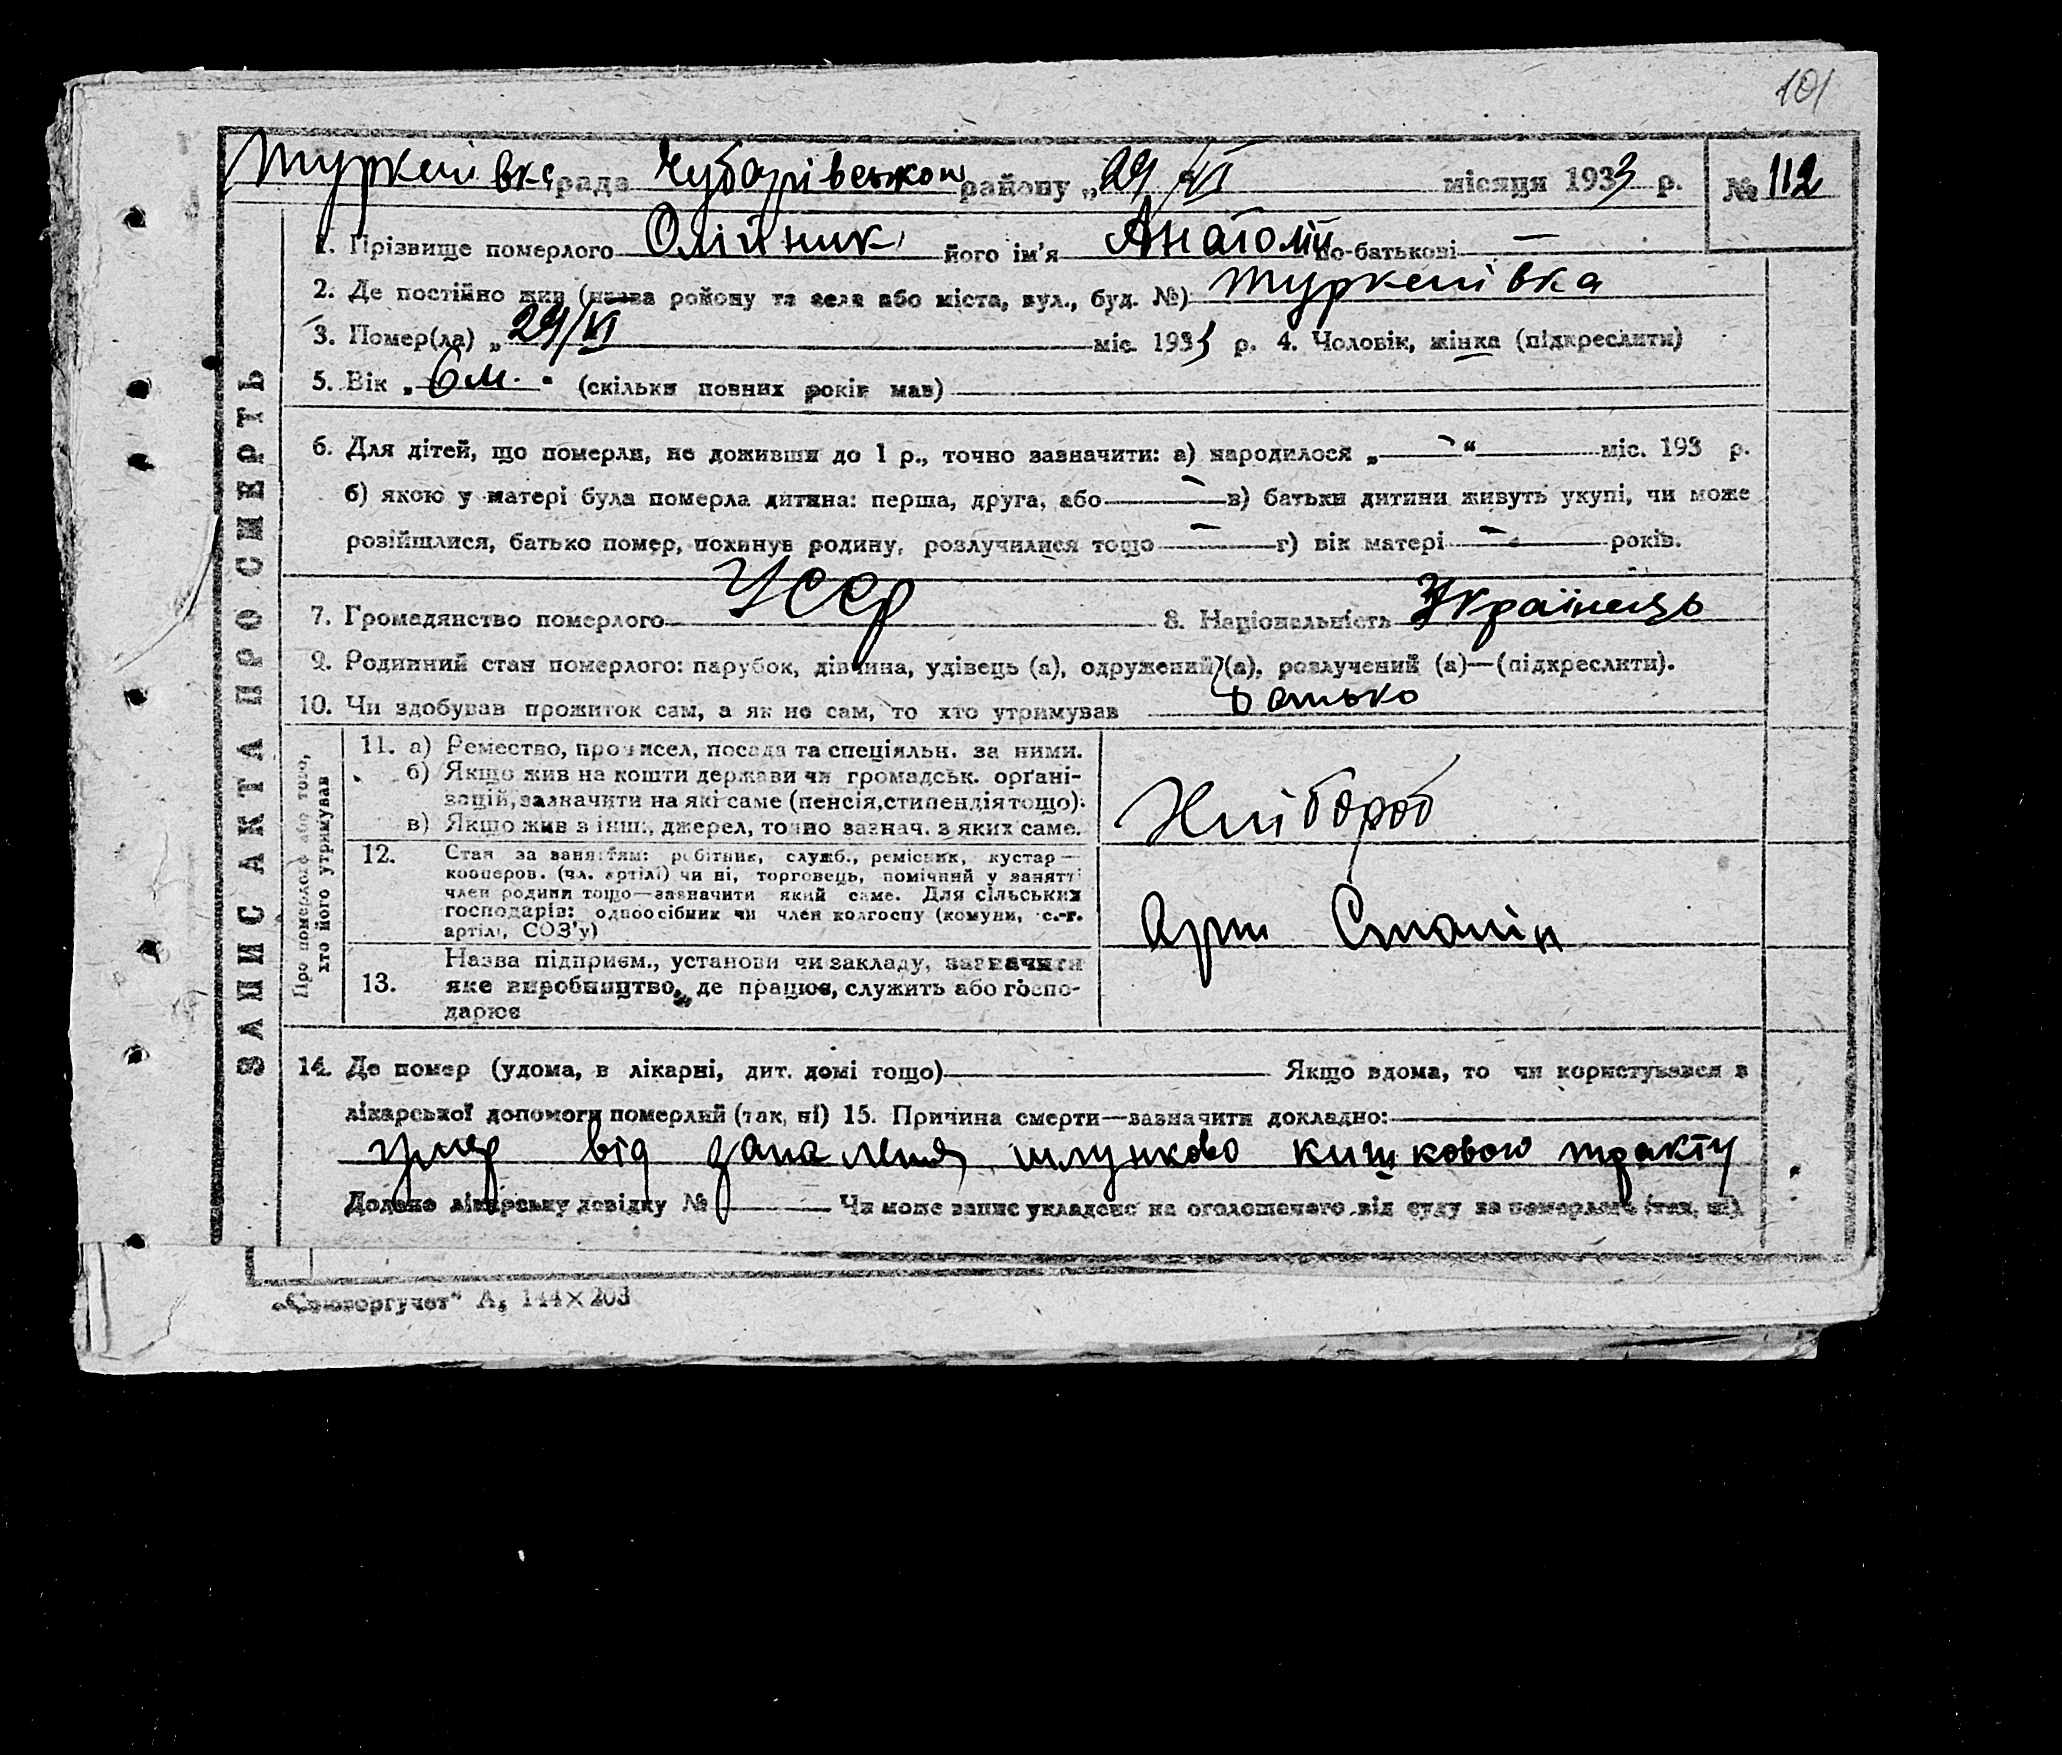 101
Туркенівка рада Чубарівського району „29 VI місяця 1933 р. № 112
1. Прізвище померлого Олійник його ім'я Анатолій по-батькові —
2. Де постійно жив (назва району та села або міста, вул., буд. №) Туркенівка
3. Помер(ла) „29/VI міс. 1933 р. 4. Чоловік, жінка (підкреслити)
5. Вік „6 м. (скільки повних років мав)
6. Для дітей, що померли, не доживши до 1 р., точно зазначити: а) народилося „—“ міс. 193 р.
б) якою у матері була померла дитина: перша, друга, або — в) батьки дитини живуть укупі, чи може
розійшлися, батько помер, покинув родину, розлучилися тощо — г) вік матері — років.
7. Громадянство померлого УССР 8. Національність Українець
9. Родинний стан померлого: парубок, дівчина, удівець (а), одружений (а), розлучений (а)—(підкреслити).
10. Чи здобував прожиток сам, а як не сам, то хто утримував батько
ЗАПИС АКТА ПРО СМЕРТЬ
Про померлого або того,
хто його утримував
11. а) Ремество, промисел, посада та спеціяльн. за ними.
б) Якщо жив на кошти держави чи громадськ. орґані-
зацій, зазначити на які саме (пенсія, стипендія тощо).
в) Якщо жив з інш. джерел, точно зазнач. з яких саме.
Хлібороб
12. Стан за заняттям: робітник, служб., ремісник, кустар—
кооперов. (чл. артілі) чи ні, торговець, помічний у занятті
член родини тощо—зазначити який саме. Для сільських
господарів: одноосібник чи член колгоспу (комуни, с.-г.
артілі, СОЗ'у)
Арт Сталін
13. Назва підприєм., установи чи закладу, зазначити
яке виробництво, де працює, служить або госпо-
дарює
14. Де помер (удома, в лікарні, дит. домі тощо) Якщо вдома, то чи користувався в
лікарської допомоги померлий (так, ні) 15. Причина смерти—зазначити докладно:
умер від запалення шлунково кишкового тракту
Додано лікарську довідку № Чи може запис укладено на оголошеного від суду за померлого (так, ні)
„Союзоргучет“ А, 144×203